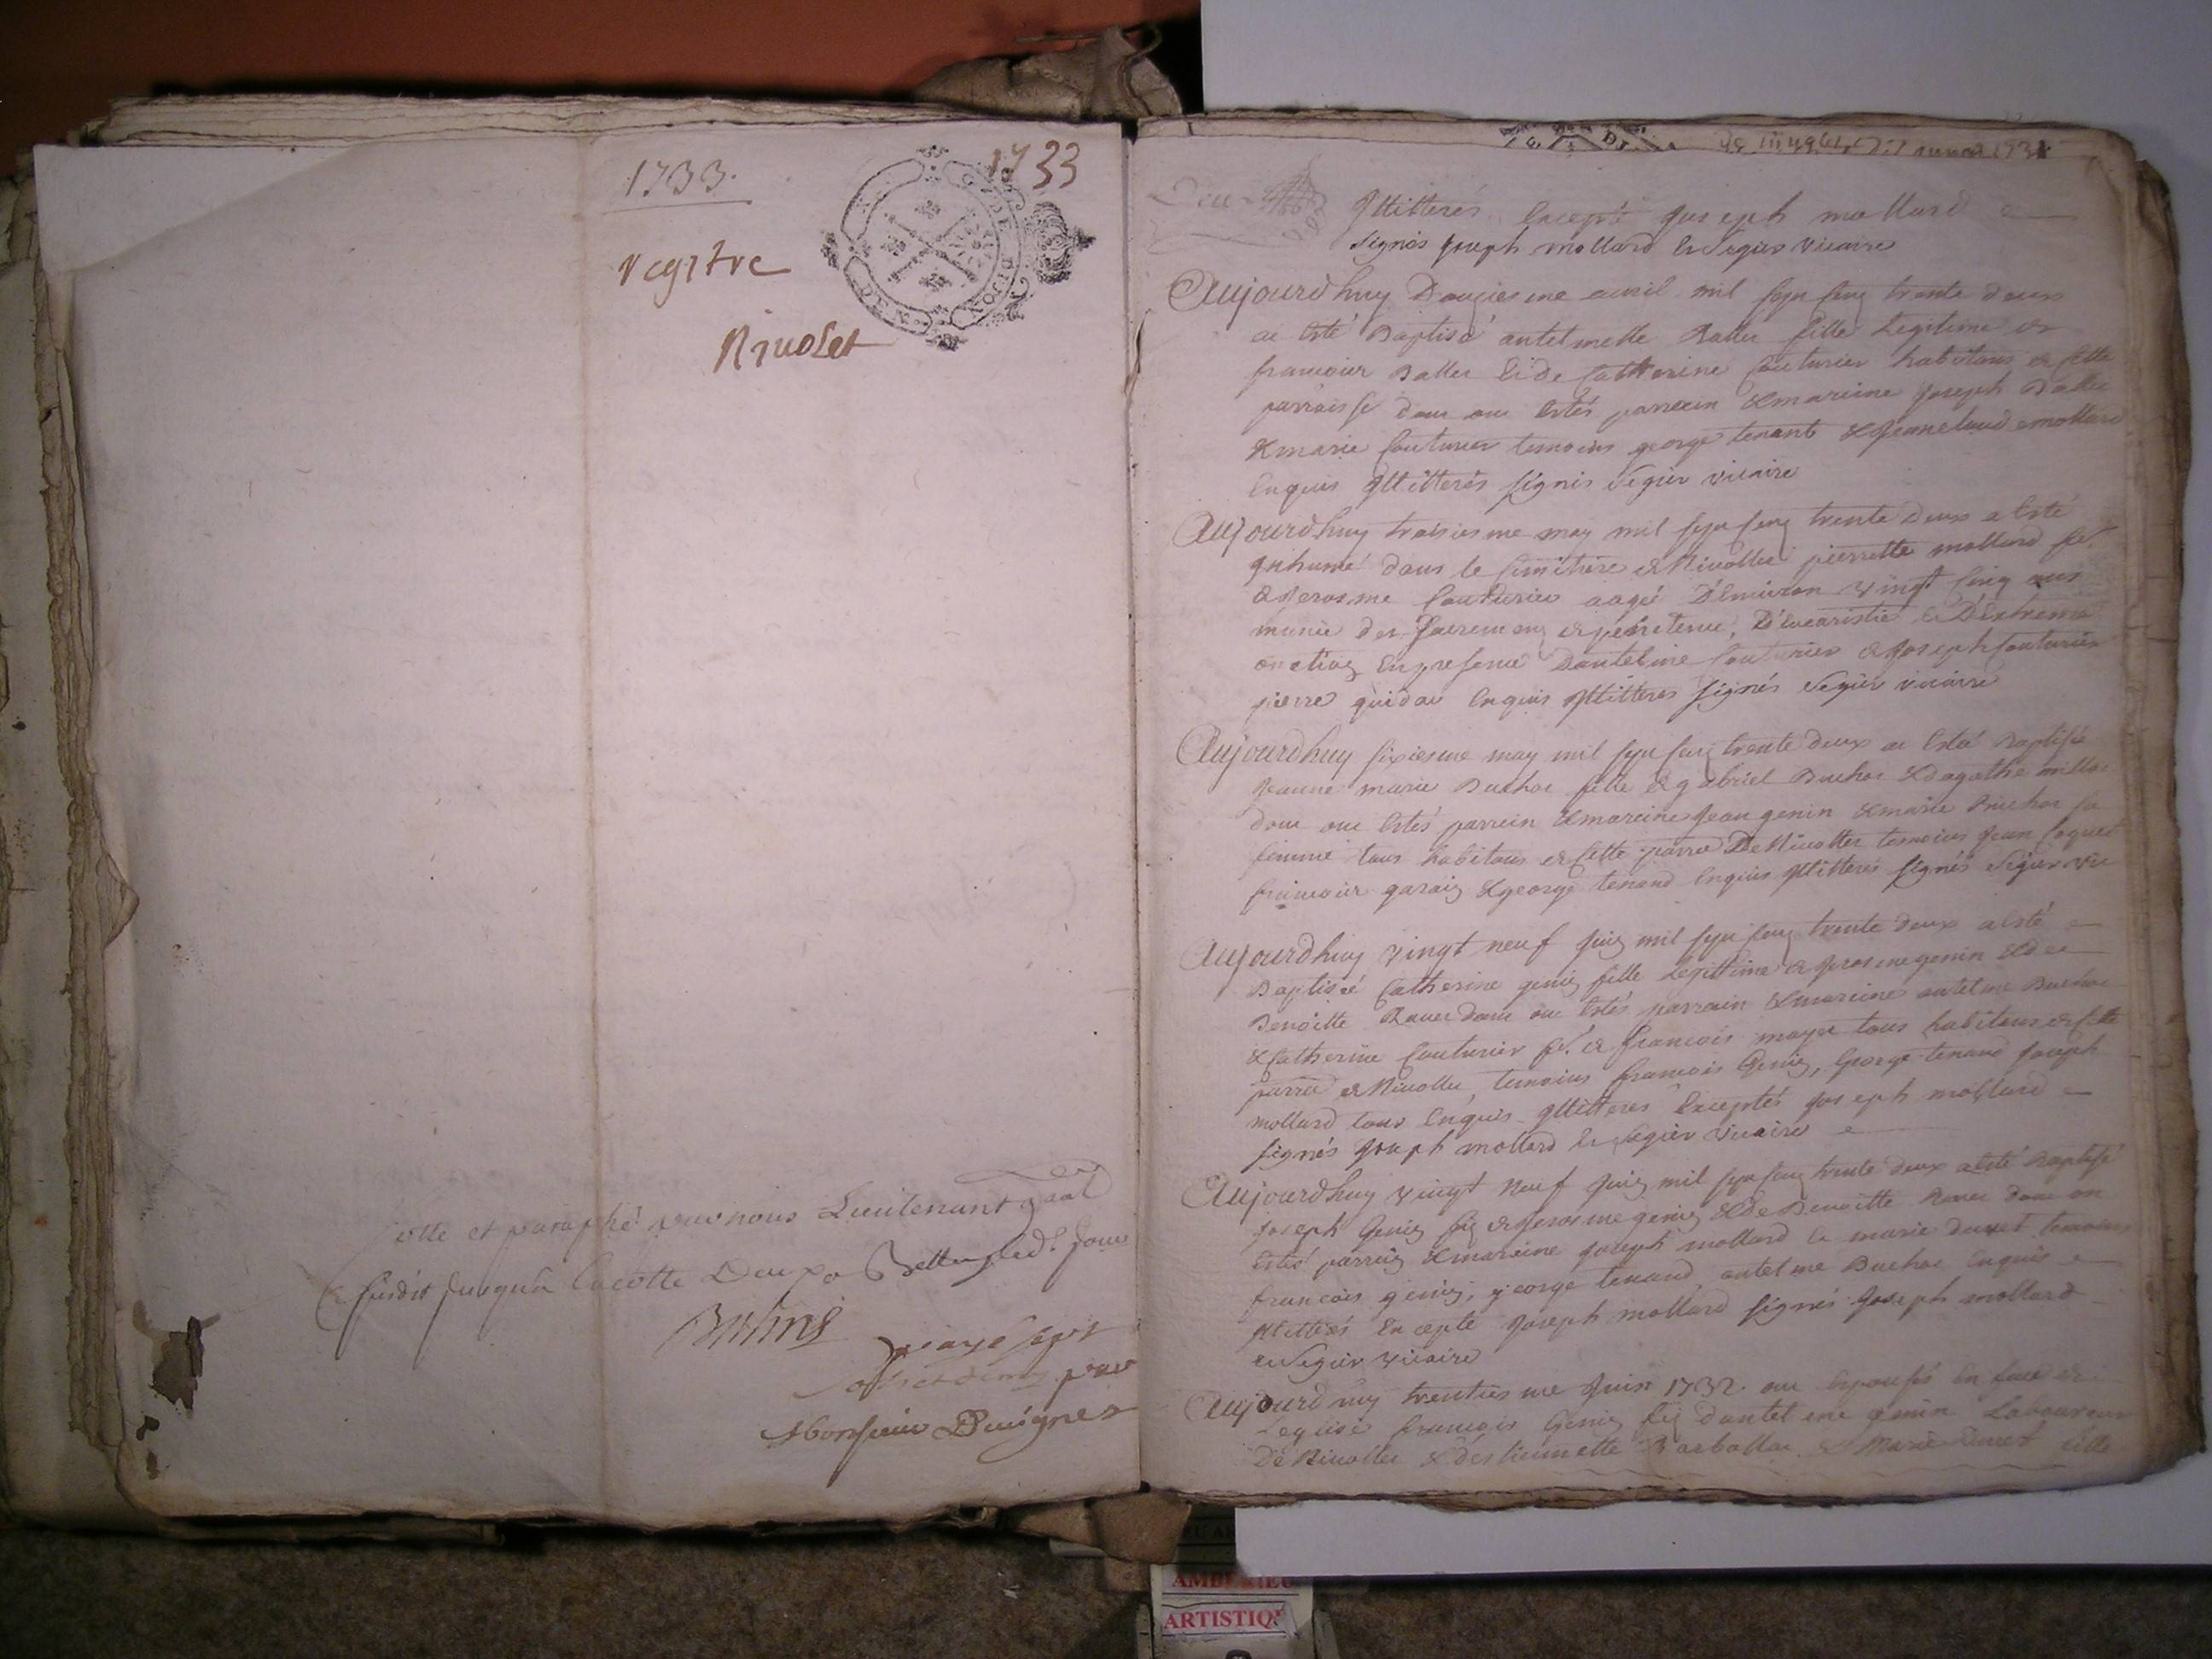 1733.
1733
regitre
Rivolet
Cotte et paraphé par nous Lieutenant
susdit jusqua la cotte Deux a Belley
payé sept
sols
Monsieur
Jllitterés Excepté Joseph mollard
signés Joseph mollard Et Segier vicaire
Aujourdhuy Douziesme avril mil sept cent trente deux
a Esté Baptisé antelmette Ballet fille Legitime de
francois Ballet Et de Catherine Couturier habitans de cette
parroisse dont ont Estés parrein & mareine Joseph Ballet
& marie Couturier temoins george tenant & mollard
Enquis Jllitterés signés Segier vicaire
Aujourdhuy troisiesme may mil sept cent trente deux a Esté
Jnhumé dans le Cimitiere de Rivollet pierrette mollard fe.
de Jerosme Couturier aagée D'Environ vingt cinq ans
munie des Sacremens de penitence, D'Eucaristie & D'Extreme
onction En presence Dantelme Couturier & Joseph Couturier
pierre guidau Enquis Jllitteres signés Segier vicaire
Aujourdhuy sixiesme may mil sept cent trente deux a Esté Baptisée
Jeanne marie Buchot fille de gabriel Buchot & dagathe
dont ont Estés parrein & mareine Jean genin & marie Buchot sa
femme tous habitans de cette parro De Rivollet temoins Jean
francois & george tenand Enquis Jllitterés signés Segier vic
Aujourdhuy vingt neuf Juin mil sept cent trente deux a Esté
Baptisée Catherine genin fille Legittime de Jerosme genin & de
Benoitte Raver dont ont Estés parrain & mareine antelme Buchot
& Catherine Couturier fe. de francois tous habitans de cette
parro de Rivollet temoins francois Genin, George tenand Joseph
mollard tous Enquis Jllitteres Exceptés Joseph mollard
signés Joseph mollard Et Segier vicaire
Aujourdhuy vingt neuf Juin mil sept cent trente deux a Esté Baptisé
Joseph Genin fis de Jerosme genin & de Benoitte Raver dont on
Estés parrein & mareine Joseph mollard Et marie duret temoins
francois genin, george tenand, antelme Buchot Enquis
Jllitterés Excepté Joseph mollard signés Joseph mollard
Et Segier vicaire
Aujourdhuy trentiesme Juin 1732. ont Espousés En face de
Leglise francois Genin fis dantelme genin Laboureur
De Rivollet & destiennette & Marie Duret fille